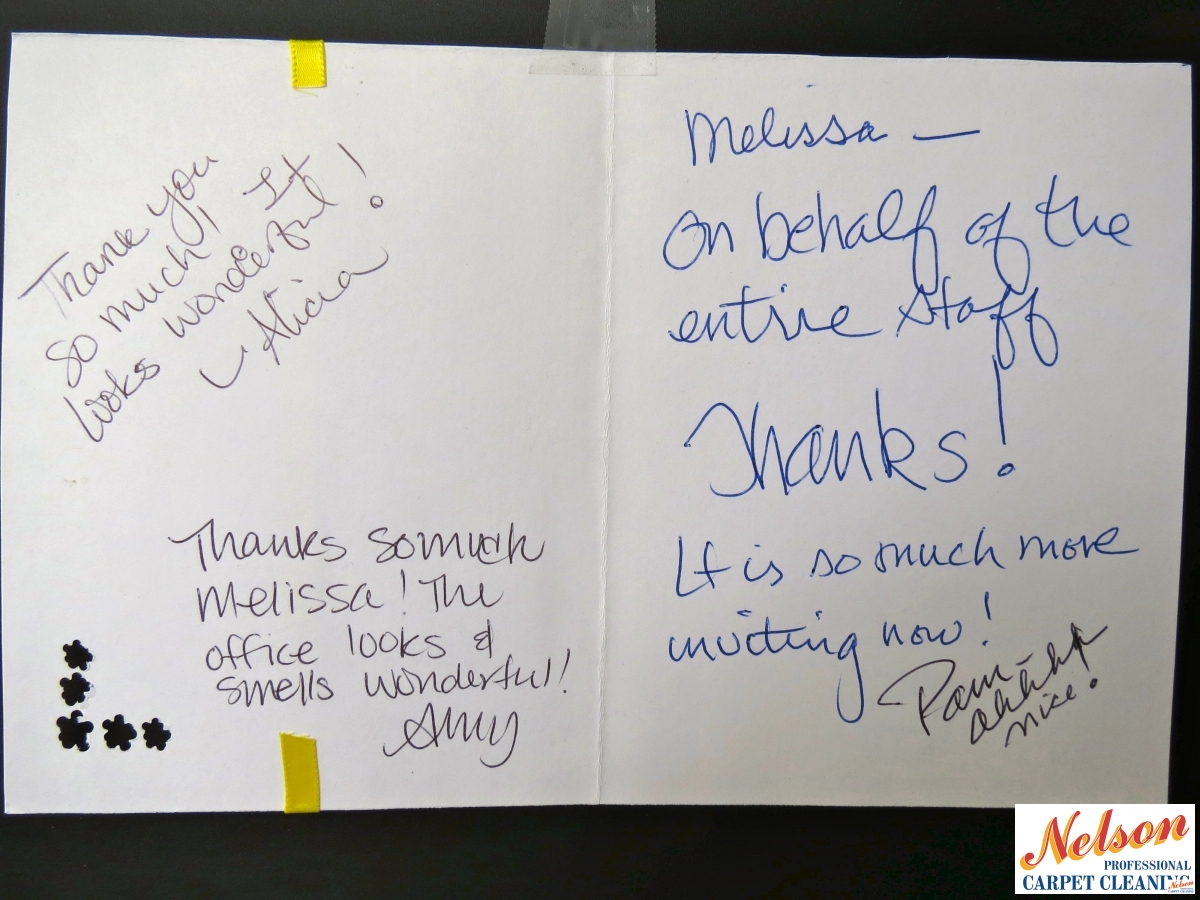 Thank you
so much! It
looks wonderful!
- Alicia
Thanks so much
Melissa! The
office looks &
smells wonderful!
Amy
Melissa —
On behalf of the
entire staff
Thanks!
It is so much more
inviting now!
Pam -
nice!
Nelson
PROFESSIONAL
CARPET CLEANING
Nelson